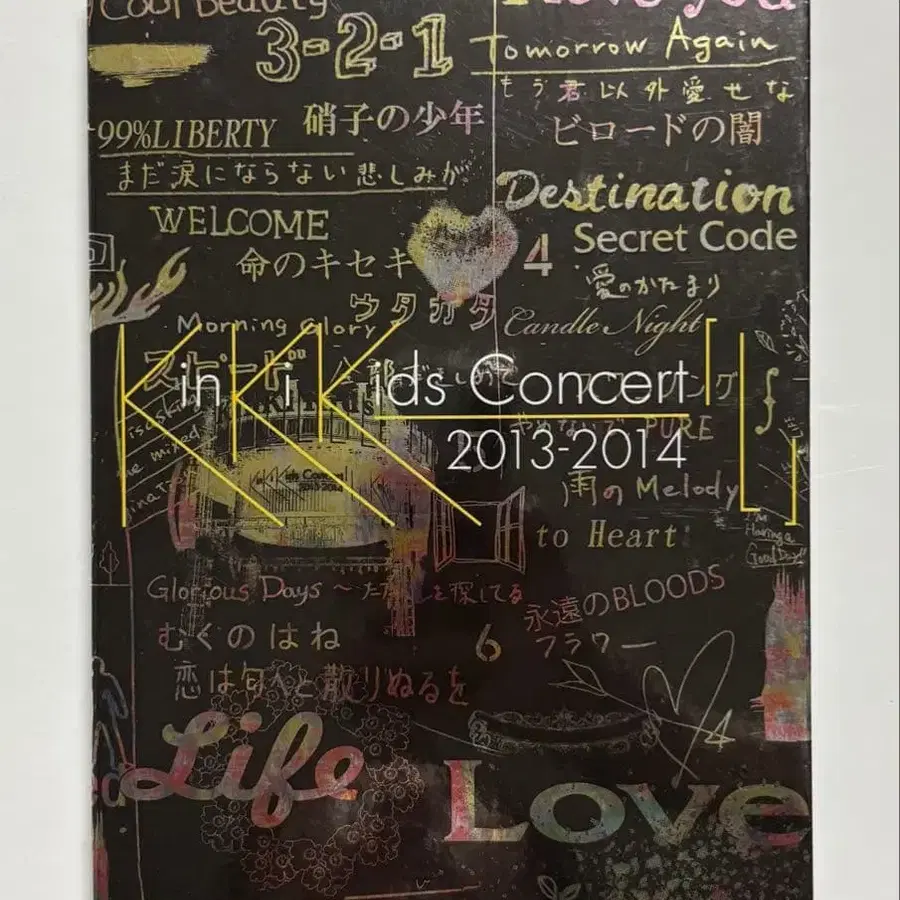 Cool Beauty
I love you
3-2-1
Tomorrow Again
もう君以外愛せな
99%LIBERTY
硝子の少年
ビロードの闇
まだ涙にならない悲しみが
Destination
WELCOME
4
Secret Code
命のキセキ
愛のかたまり
ウタカタ
Morning Glory
Candle Night
スピード
KinKi Kids Concert 「L」
2013-2014
やめないで PURE
is asking
the mixed
KinKi Kids Concert
2013-2014
雨のMelody
to Heart
I'm
Having a
Good Day!
Glorious Days ~ただしを探してる
永遠のBLOODS
むくのはね
6
フラワー
恋は匂へと散りぬるを
Life
Love